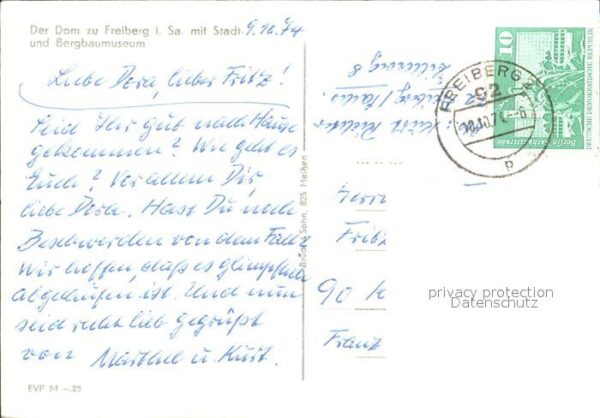 Der Dom zu Freiberg i. Sa. mit Stadt-
und Bergbaumuseum
9.10.74
Liebe Dora, lieber Fritz!
Seid Ihr gut nach Hause
gekommen? Wie geht es
Euch? Vor allem Dir,
liebe Dora. Hast Du noch
Beschwerden von dem Fall?
Wir hoffen, daß es glimpflich
abgelaufen ist. Und nun
seid recht lieb gegrüßt
von Marthel u. Kurt.
EVP M –.25
Sohn, 825 Meißen
Kurt Richter
92 Freiberg
FREIBERG 2
92
10.10.74
p
10
DEUTSCHE DEMOKRATISCHE REPUBLIK
Berlin, Rathausstraße
Herrn
Fritz
90 K
Franz
privacy protection
Datenschutz